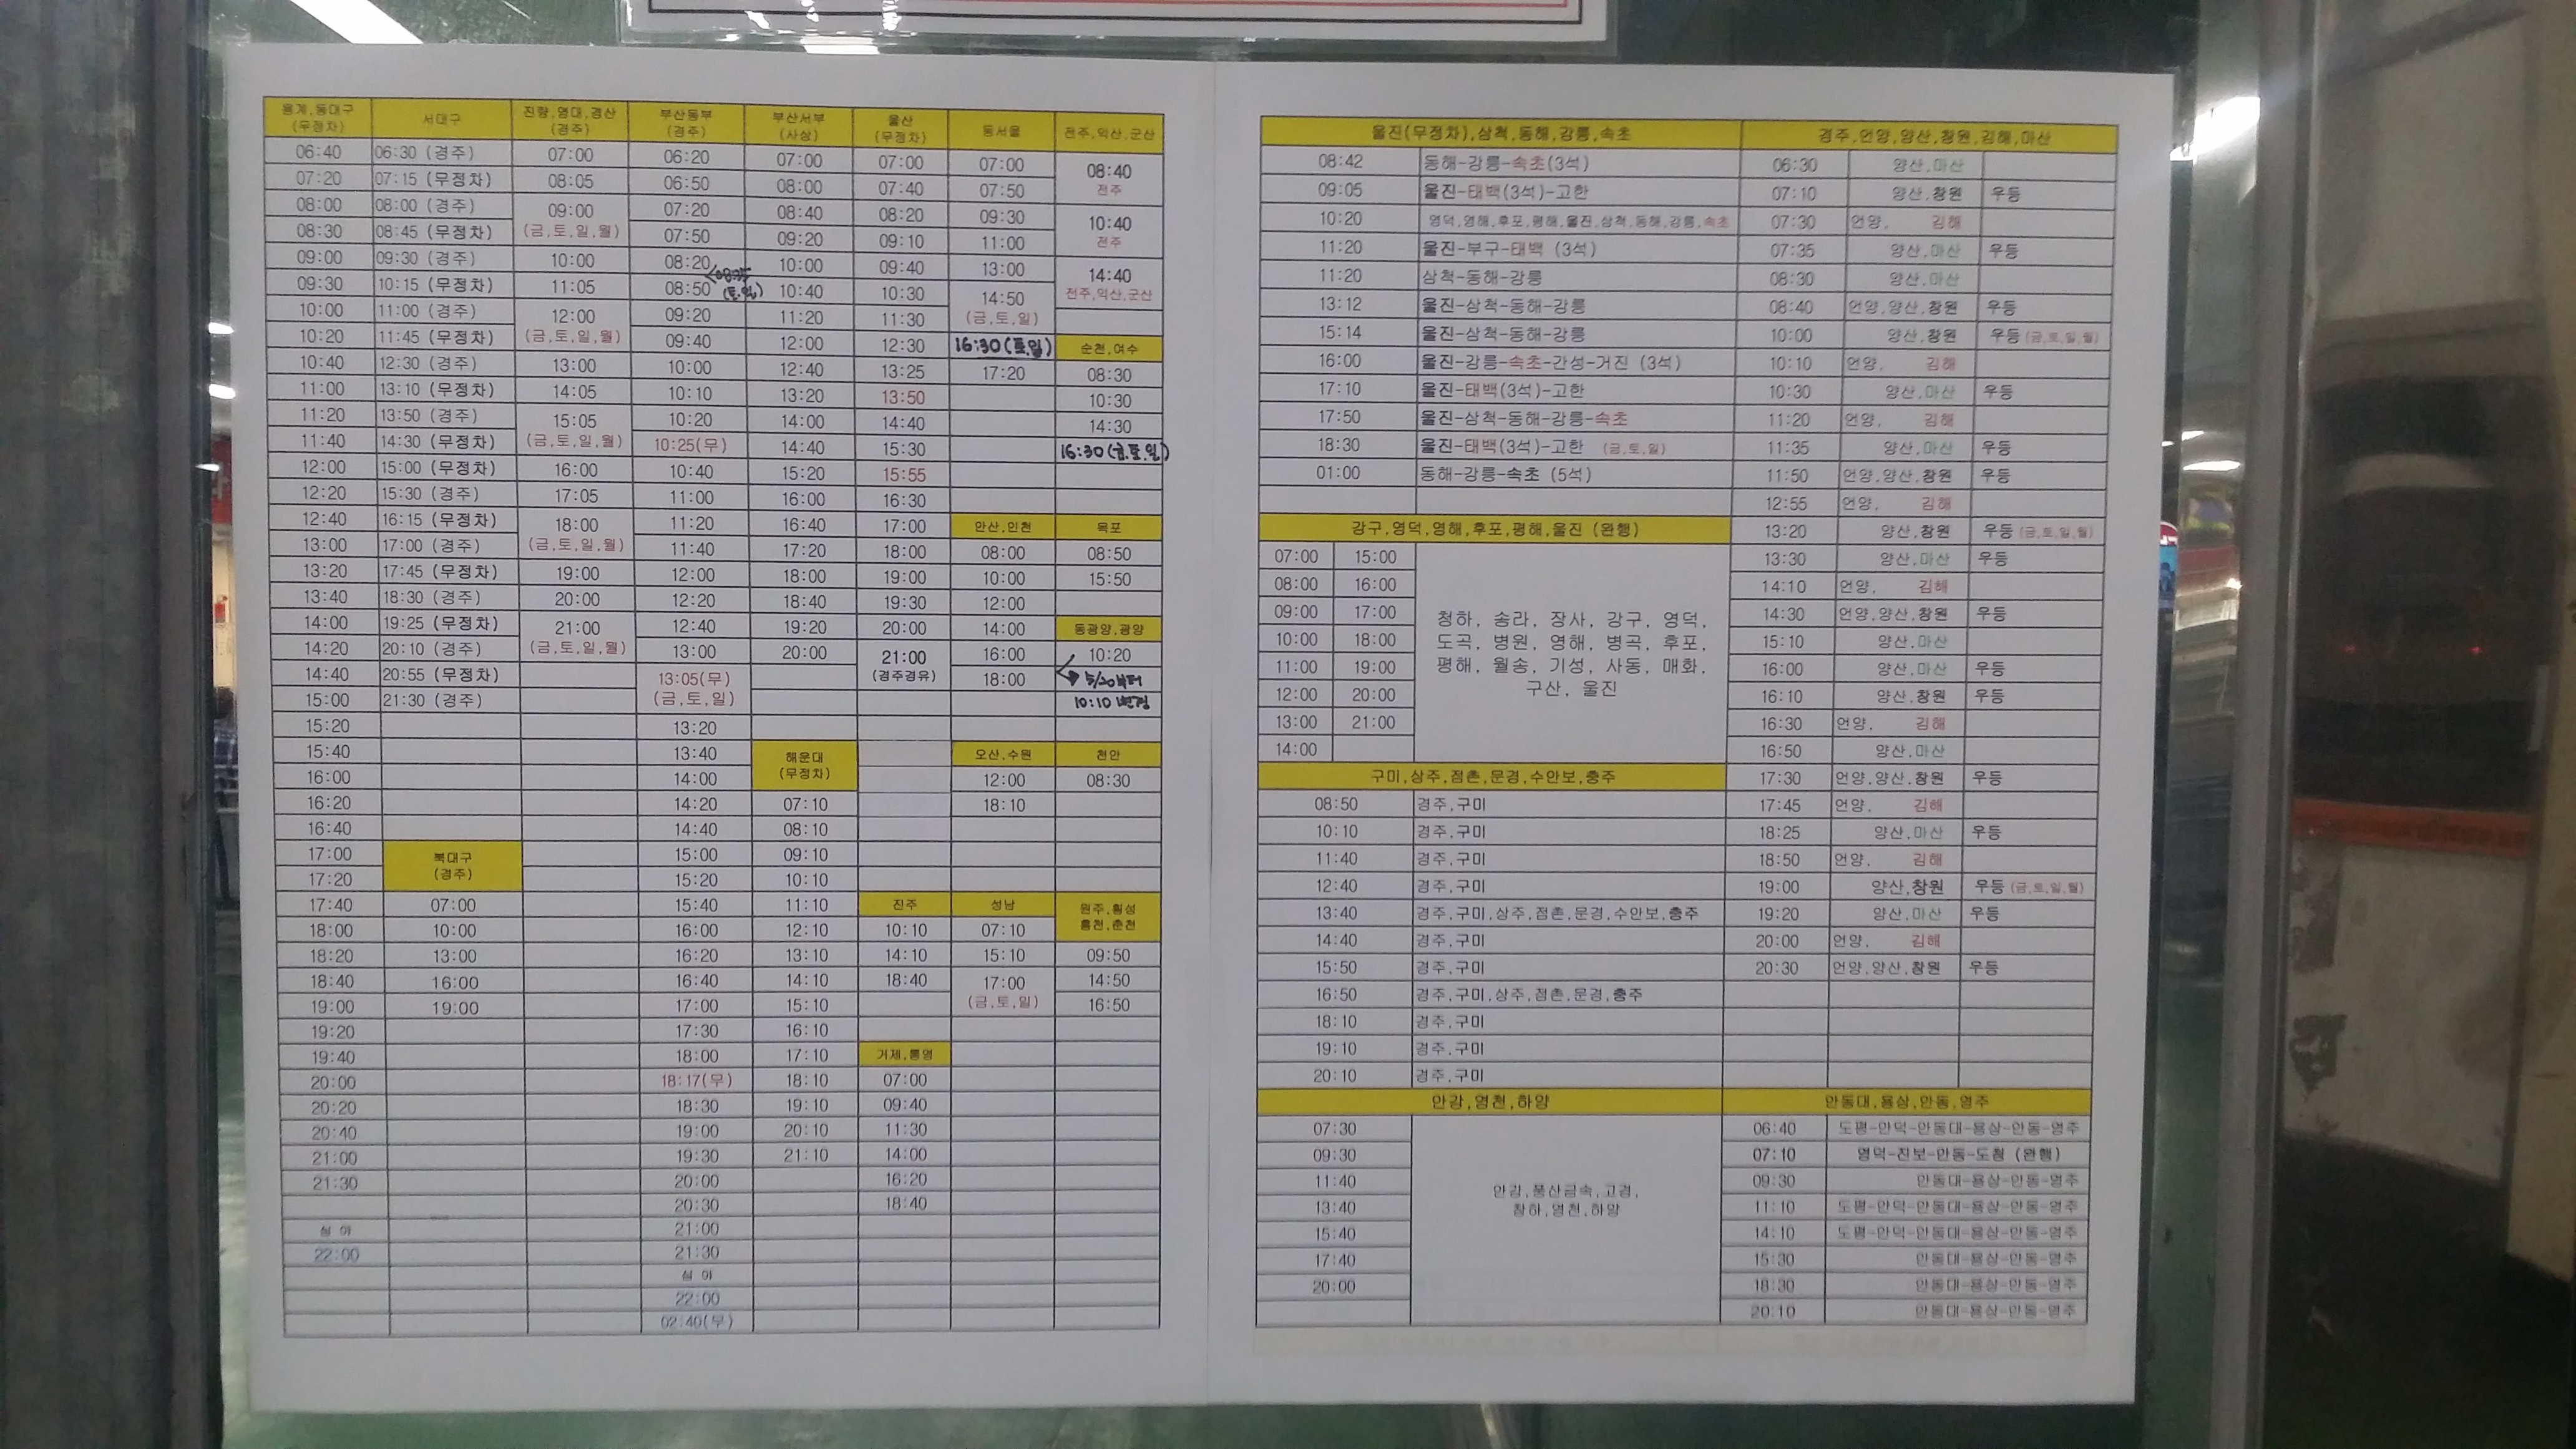 용계,동대구
(무정차)
06:40
07:20
08:00
08:30
09:00
09:30
10:00
10:20
10:40
11:00
11:20
11:40
12:00
12:20
12:40
13:00
13:20
13:40
14:00
14:20
14:40
15:00
15:20
15:40
16:00
16:20
16:40
17:00
17:20
17:40
18:00
18:20
18:40
19:00
19:20
19:40
20:00
20:20
20:40
21:00
21:30
심 야
22:00
서대구
06:30 (경주)
07:15 (무정차)
08:00 (경주)
08:45 (무정차)
09:30 (경주)
10:15 (무정차)
11:00 (경주)
11:45 (무정차)
12:30 (경주)
13:10 (무정차)
13:50 (경주)
14:30 (무정차)
15:00 (무정차)
15:30 (경주)
16:15 (무정차)
17:00 (경주)
17:45 (무정차)
18:30 (경주)
19:25 (무정차)
20:10 (경주)
20:55 (무정차)
21:30 (경주)
북대구
(경주)
07:00
10:00
13:00
16:00
19:00
진량,영대,경산
(경주)
07:00
08:05
09:00
(금,토,일,월)
10:00
11:05
12:00
(금,토,일,월)
13:00
14:05
15:05
(금,토,일,월)
16:00
17:05
18:00
(금,토,일,월)
19:00
20:00
21:00
(금,토,일,월)
부산동부
(경주)
06:20
06:50
07:20
07:50
08:20
08:35
(토.일)
08:50
09:20
09:40
10:00
10:10
10:20
10:25(무)
10:40
11:00
11:20
11:40
12:00
12:20
12:40
13:00
13:05(무)
(금,토,일)
13:20
13:40
14:00
14:20
14:40
15:00
15:20
15:40
16:00
16:20
16:40
17:00
17:30
18:00
18:17(무)
18:30
19:00
19:30
20:00
20:30
21:00
21:30
심 야
22:00
02:40(무)
부산서부
(사상)
07:00
08:00
08:40
09:20
10:00
10:40
11:20
12:00
12:40
13:20
14:00
14:40
15:20
16:00
16:40
17:20
18:00
18:40
19:20
20:00
해운대
(무정차)
07:10
08:10
09:10
10:10
11:10
12:10
13:10
14:10
15:10
16:10
17:10
18:10
19:10
20:10
21:10
울산
(무정차)
07:00
07:40
08:20
09:10
09:40
10:30
11:30
12:30
13:25
13:50
14:40
15:30
15:55
16:30
17:00
18:00
19:00
19:30
20:00
21:00
(경주경유)
진주
10:10
14:10
18:40
거제,통영
07:00
09:40
11:30
14:00
16:20
18:40
동서울
07:00
07:50
09:30
11:00
13:00
14:50
(금,토,일)
16:30(토.일)
17:20
안산,인천
08:00
10:00
12:00
14:00
16:00
18:00
오산,수원
12:00
18:10
성남
07:10
15:10
17:00
(금,토,일)
전주,익산,군산
08:40
전주
10:40
전주
14:40
전주,익산,군산
순천,여수
08:30
10:30
14:30
16:30(금.토.일)
목포
08:50
15:50
동광양,광양
10:20
부터
10:10 변경
천안
08:30
원주,횡성
홍천,춘천
09:50
14:50
16:50
울진(무정차),삼척,동해,강릉,속초
08:42 동해-강릉-속초(3석)
09:05 울진-태백(3석)-고한
10:20 영덕,영해,후포,평해,울진,삼척,동해,강릉,속초
11:20 울진-부구-태백 (3석)
11:20 삼척-동해-강릉
13:12 울진-삼척-동해-강릉
15:14 울진-삼척-동해-강릉
16:00 울진-강릉-속초-간성-거진 (3석)
17:10 울진-태백(3석)-고한
17:50 울진-삼척-동해-강릉-속초
18:30 울진-태백(3석)-고한 (금,토,일)
01:00 동해-강릉-속초 (5석)
강구,영덕,영해,후포,평해,울진 (완행)
07:00 15:00
08:00 16:00
09:00 17:00
10:00 18:00
11:00 19:00
12:00 20:00
13:00 21:00
14:00
청하, 송라, 장사, 강구, 영덕,
도곡, 병원, 영해, 병곡, 후포,
평해, 월송, 기성, 사동, 매화,
구산, 울진
구미,상주,점촌,문경,수안보,충주
08:50 경주,구미
10:10 경주,구미
11:40 경주,구미
12:40 경주,구미
13:40 경주,구미,상주,점촌,문경,수안보,충주
14:40 경주,구미
15:50 경주,구미
16:50 경주,구미,상주,점촌,문경,충주
18:10 경주,구미
19:10 경주,구미
20:10 경주,구미
안강,영천,하양
07:30
09:30
11:40
13:40
15:40
17:40
20:00
안강,풍산금속,고경,
청하,영천,하양
경주,언양,양산,창원,김해,마산
06:30 양산,마산
07:10 양산,창원 우등
07:30 언양, 김해
07:35 양산,마산 우등
08:30 양산,마산
08:40 언양,양산,창원 우등
10:00 양산,창원 우등 (금,토,일,월)
10:10 언양, 김해
10:30 양산,마산 우등
11:20 언양, 김해
11:35 양산,마산 우등
11:50 언양,양산,창원 우등
12:55 언양, 김해
13:20 양산,창원 우등 (금,토,일,월)
13:30 양산,마산 우등
14:10 언양, 김해
14:30 언양,양산,창원 우등
15:10 양산,마산
16:00 양산,마산 우등
16:10 양산,창원 우등
16:30 언양, 김해
16:50 양산,마산
17:30 언양,양산,창원 우등
17:45 언양, 김해
18:25 양산,마산 우등
18:50 언양, 김해
19:00 양산,창원 우등 (금,토,일,월)
19:20 양산,마산 우등
20:00 언양, 김해
20:30 언양,양산,창원 우등
안동대,용상,안동,영주
06:40 도평-안덕-안동대-용상-안동-영주
07:10 영덕-진보-안동-도청 (완행)
09:30 안동대-용상-안동-영주
11:10 도평-안덕-안동대-용상-안동-영주
14:10 도평-안덕-안동대-용상-안동-영주
15:30 안동대-용상-안동-영주
18:30 안동대-용상-안동-영주
20:10 안동대-용상-안동-영주